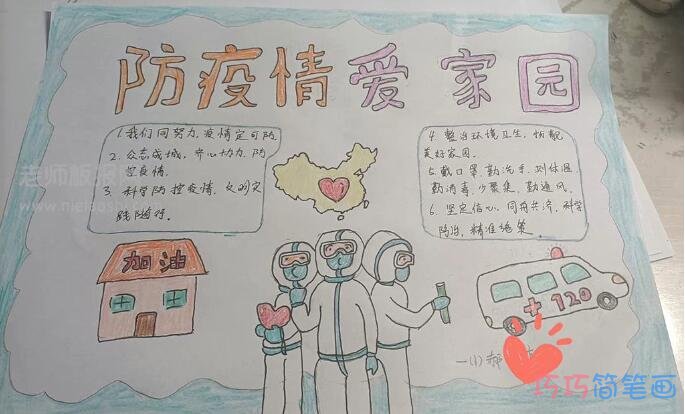 防疫情爱家园
1.我们同努力,疫情定可防。
2.众志成城,齐心协力,防
控疫情。
3.科学防控疫情,文明实
践随行。
4.整治环境卫生,扮靓
美好家园。
5.戴口罩,勤洗手,测体温,
勤消毒,少聚集,勤通风。
6.坚定信心,同舟共济,科学
防治,精准施策。
加油
120
一(1)
老师板报网
www.nielaoshi.com
巧巧简笔画